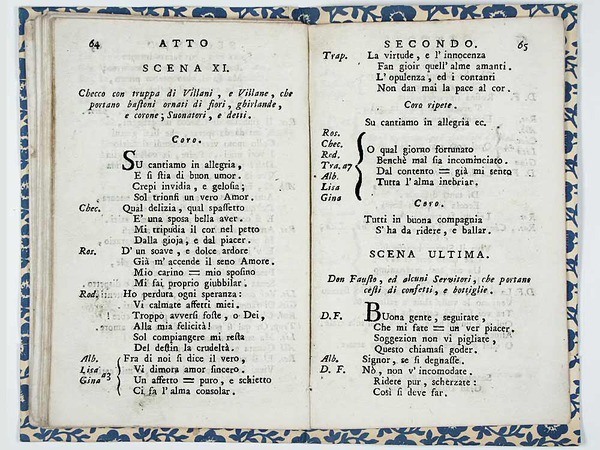 64 ATTO
SCENA XI.
Checco con truppa di Villani, e Villane, che
portano bastoni ornati di fiori, ghirlande,
e corone; Suonatori, e detti.
Coro.
SU cantiamo in allegria,
E si stia di buon umor.
Crepi invidia, e gelosia;
Sol trionfi un vero Amor.
Chec. Qual delizia, qual spassetto
E' una sposa bella aver.
Mi tripudia il cor nel petto
Dalla gioja, e dal piacer.
Ros. D' un soave, e dolce ardore
Già m' accende il seno Amore.
Mio carino = mio sposino
Mi fai proprio giubbilar.
Red. Ho perduta ogni speranza:
Vi calmate affetti miei.
Troppo avversi foste, o Dei,
Alla mia felicità!
Sol compiangere mi resta
Del destin la crudeltà.
Alb. Fra di noi si dice il vero,
Lisa Vi dimora amor sincero.
Gina a3 Un affetto = puro, e schietto
Ci fa l' alma consolar.
SECONDO. 65
Trap. La virtude, e l' innocenza
Fan gioir quell' alme amanti.
L' opulenza, ed i contanti
Non dan mai la pace al cor.
Coro ripete.
Su cantiamo in allegria ec.
Ros.
Chec. O qual giorno fortunato
Red. Benchè mal sia incominciato.
Tra. a7 Dal contento = già mi sento
Alb. Tutta l' alma inebriar.
Lisa
Gina
Coro.
Tutti in buona compagnia
S' ha da ridere, e ballar.
SCENA ULTIMA.
Don Fausto, ed alcuni Servitori, che portano
cesti di confetti, e bottiglie.
D.F. BUona gente, seguitate,
Che mi fate = un ver piacer.
Soggezion non vi pigliate,
Questo chiamasi goder.
Alb. Signor, se si degnasse.
D. F. Nò, non v' incomodate.
Ridete pur, scherzate:
Così si deve far.